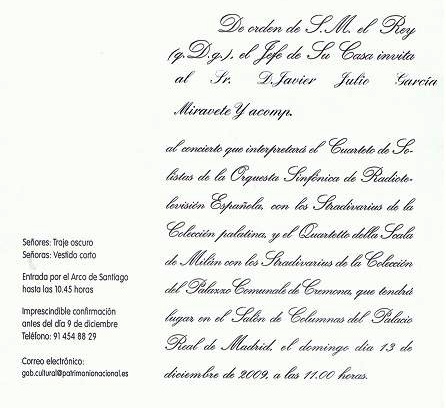 De orden de S.M. el Rey
(q.D.g.), el Jefe de Su Casa invita
al Sr. D.Javier Julio García
Miravete Y acomp.
al concierto que interpretará el Cuarteto de So-
listas de la Orquesta Sinfónica de Radiote-
levisión Española, con los Stradivarius de la
Colección palatina, y el Quartetto della Scala
de Milán con los Stradivarius de la Colección
del Palazzo Comunale de Cremona, que tendrá
lugar en el Salón de Columnas del Palacio
Real de Madrid, el domingo día 13 de
diciembre de 2009, a las 11.00 horas.
Señores: Traje oscuro
Señoras: Vestido corto
Entrada por el Arco de Santiago
hasta las 10.45 horas
Imprescindible confirmación
antes del día 9 de diciembre
Teléfono: 91 454 88 29
Correo electrónico:
gab.cultural@patrimonionacional.es